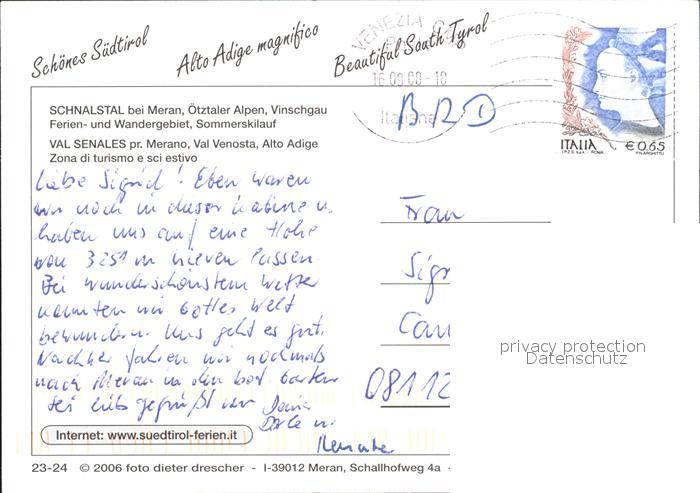 Schönes Südtirol
Alto Adige magnifico
Beautiful South Tyrol
VENEZIA
16.09.08-18
Italiane
BRD
ITALIA
€0,65
I.P.Z.S. S.p.A. - ROMA
SCHNALSTAL bei Meran, Ötztaler Alpen, Vinschgau
Ferien- und Wandergebiet, Sommerskilauf
VAL SENALES pr. Merano, Val Venosta, Alto Adige
Zona di turismo e sci estivo
Liebe Sigrid! Eben waren
wir noch in dieser Kabine u.
haben uns auf eine Höhe
von 3251 m hieven lassen
Bei wunderschönstem Wetter
konnten wir Gottes Welt
bewundern. Uns geht es gut.
Nachher fahren wir nochmals
nach Meran in den bot. Garten
Sei lieb gegrüßt von Deine
u.
Renate
Frau
Sigr
Cau
08112
privacy protection
Datenschutz
Internet: www.suedtirol-ferien.it
23-24 © 2006 foto dieter drescher - I-39012 Meran, Schallhofweg 4a -